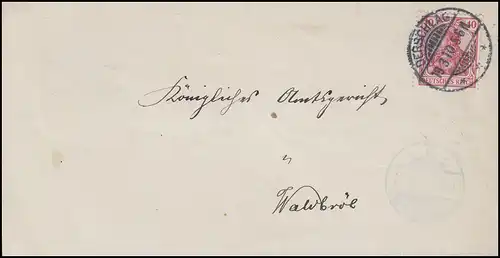 DERSCHLAG
10
DEUTSCHES REICH
Königliches Amtsgericht
Waldbröl